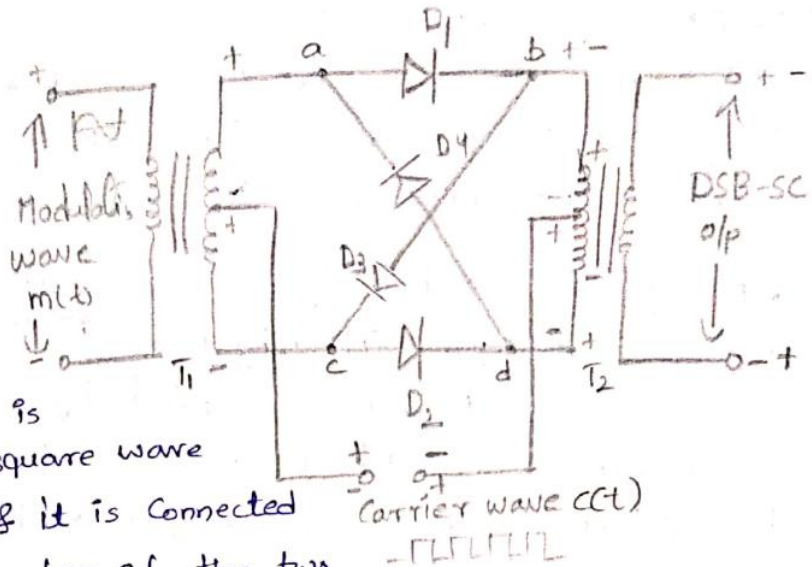 D1
a
b
+ -
+
+
+ -
D4
Modulati,
wave
m(t)
DSB-SC
o/p
D3
T1
-
c
d
D2
T2
- +
is
square wave
+ -
- +
if it is Connected
Carrier wave c(t)